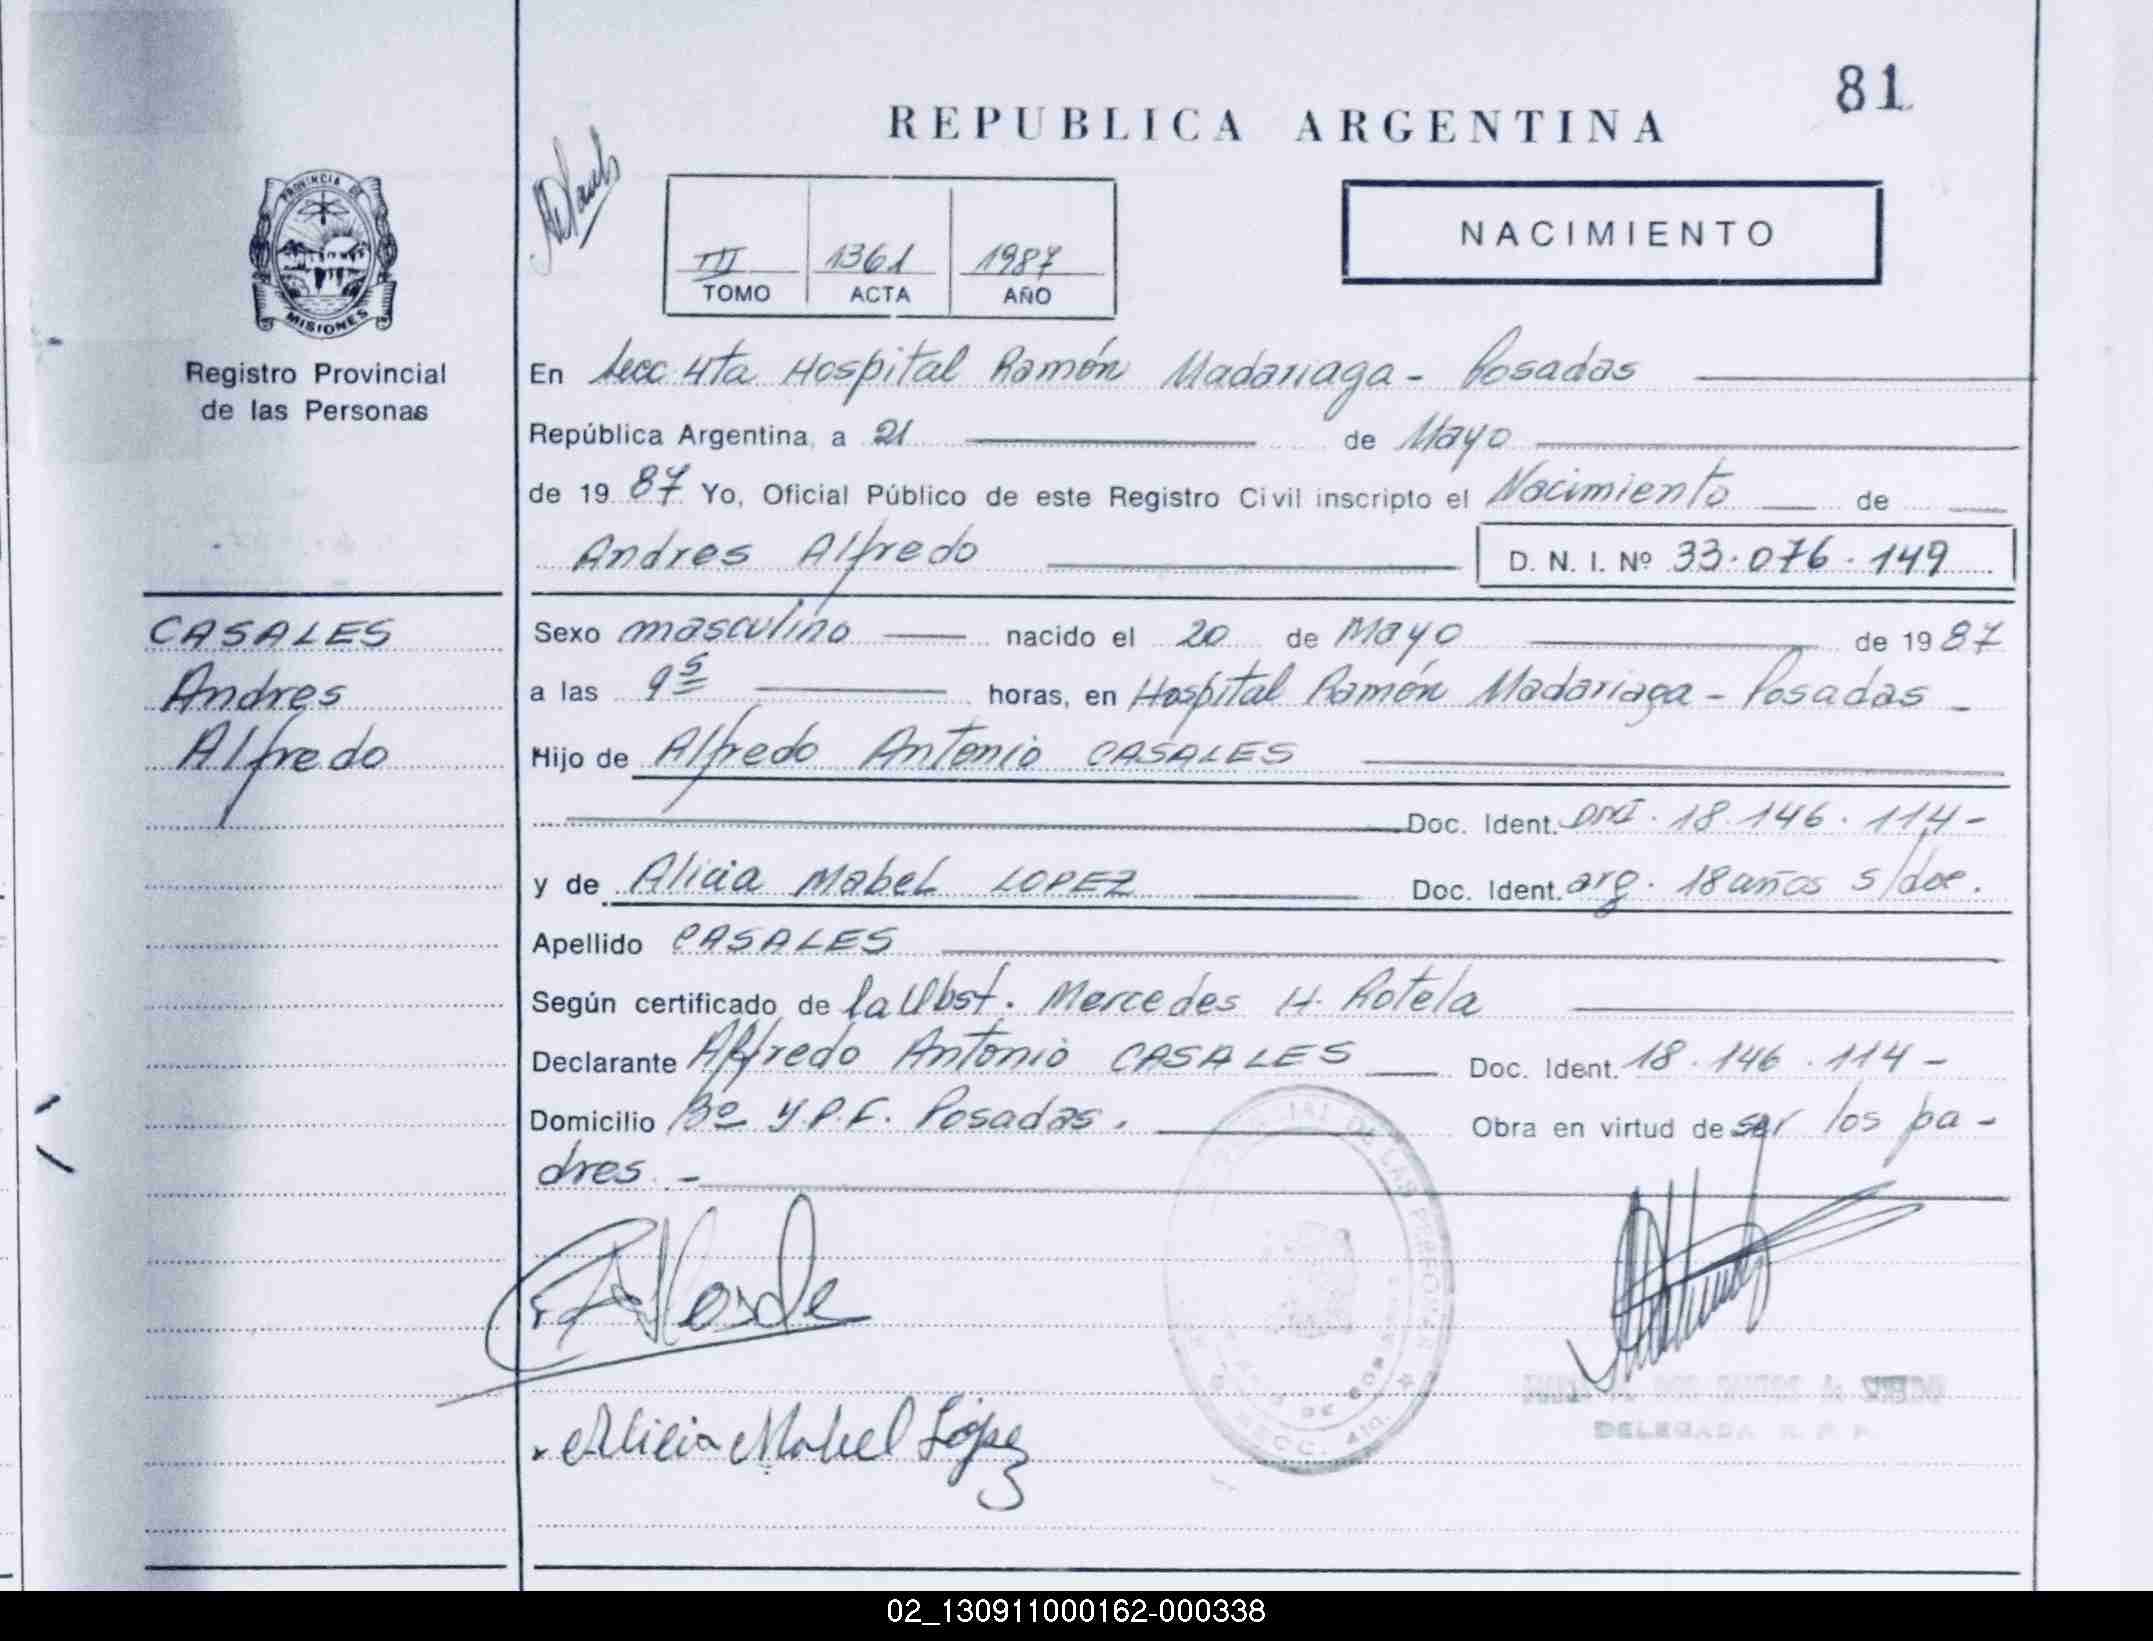 81
REPUBLICA ARGENTINA
PROVINCIA DE
MISIONES
Registro Provincial
de las Personas
III 1361 1987
TOMO ACTA AÑO
NACIMIENTO
En Secc 4ta Hospital Ramón Madariaga - Posadas
República Argentina, a 21 de Mayo
de 19 87 Yo, Oficial Público de este Registro Civil inscripto el Nacimiento de
Andres Alfredo D. N. I. Nº 33.076.149
CASALES
Andres
Alfredo
Sexo masculino nacido el 20 de Mayo de 19 87
a las 9 5 horas, en Hospital Ramón Madariaga - Posadas -
Hijo de Alfredo Antonio CASALES
Doc. Ident. DNI. 18.146.114 -
y de Alicia Mabel LOPEZ Doc. Ident. arg. 18 años s/doc.
Apellido CASALES
Según certificado de la Obst. Mercedes H. Rotela
Declarante Alfredo Antonio CASALES Doc. Ident. 18.146.114 -
Domicilio Bº Y.P.F. Posadas. Obra en virtud de ser los pa-
dres. -
Alicia Mabel López
SECC. 4ta.
DELEGADA R. P. P.
02_130911000162-000338